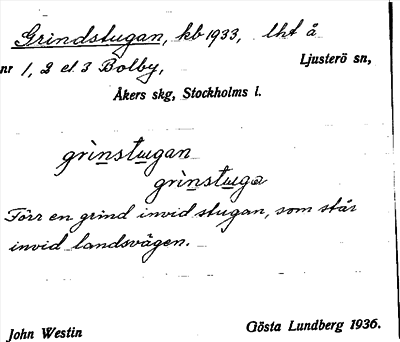 Grindstugan, kb 1933, lht å
nr 1, 2 el 3 Bolby,
Ljusterö sn,
Åkers skg, Stockholms l.
grìnstugan
grìnstuga
Förr en grind invid stugan, som står
invid landsvägen.
John Westin
Gösta Lundberg 1936.